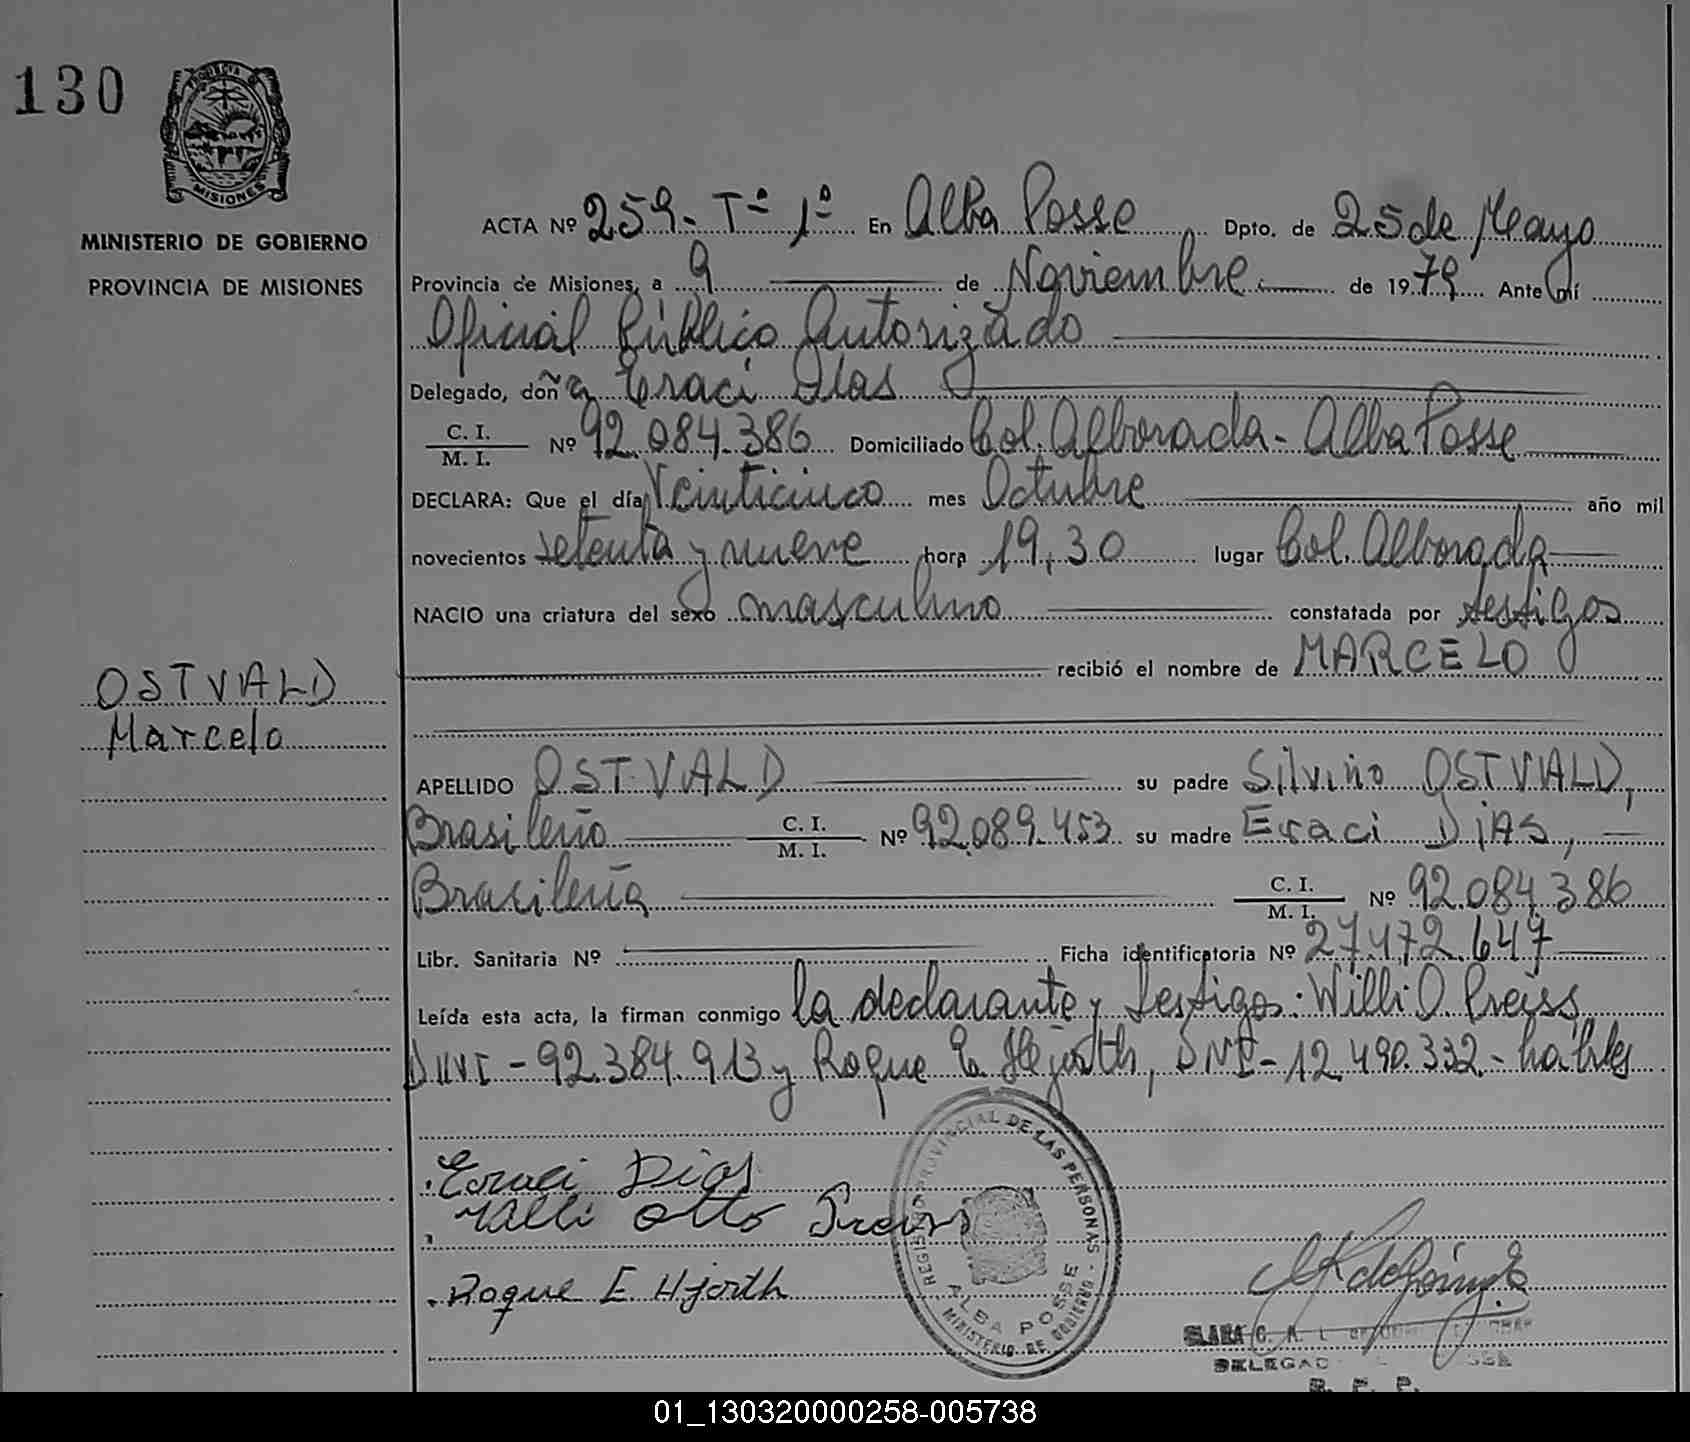 130
PROVINCIA DE
MISIONES
MINISTERIO DE GOBIERNO
PROVINCIA DE MISIONES
ACTA Nº 259- Tº 1º En Alba Posse Dpto. de 25 de Mayo
Provincia de Misiones, a 9 de Noviembre de 1979 Ante mí
Oficial Público Autorizado
Delegado, doña Eraci Dias
C. I.
M. I. Nº 92.084.386 Domiciliado Col. Alborada - Alba Posse
DECLARA: Que el día Veinticinco mes Octubre año mil
novecientos setenta y nueve hora 19,30 lugar Col. Alborada
NACIO una criatura del sexo masculino constatada por testigos
recibió el nombre de MARCELO
OSTVALD
Marcelo
APELLIDO OSTVALD su padre Silvino OSTVALD,
Brasileño C. I. M. I. Nº 92.089.453 su madre Eraci DiAS,
Brasileña C. I. M. I. Nº 92.084.386
Libr. Sanitaria Nº Ficha identificatoria Nº 27.472.647
Leída esta acta, la firman conmigo la declarante y testigos: Willi O. Preiss,
DNI - 92.384.913 y Roque E. Hjorth, DNI - 12.490.332 - hábiles
Eraci Dias
Willi Otto Preiss
Roque E. Hjorth
REGISTRO PROVINCIAL DE LAS PERSONAS -
ALBA POSSE
MINISTERIO DE GOBIERNO
CLARA C.
01_130320000258-005738